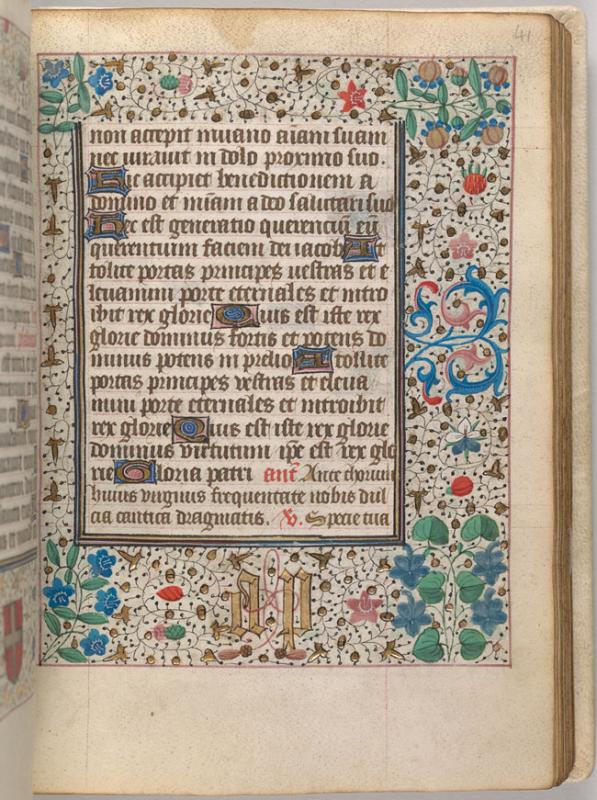 41
non accepit in uano aīam suam
nec iurauit in dolo proximo suo.
Hic accipiet benedictionem a
domino et mīam a deo salutari suo
Hec est generatio querenciū eū
querentium faciem dei iacob At
tolite portas principes uestras et e
leuamini porte eternales et intro
ibit rex glorie Quis est iste rex
glorie dominus fortis et potens do
minus potens in prelio Attollite
portas principes vestras et eleua
mini porte eternales et introibit
rex glorie Quis est iste rex glorie
dominus virtutum ip̄e est rex glo
rie Gloria patri anī Ante thorum
huius virginis frequentate nobis dul
cia cantica dragmatis. V. Specie tua